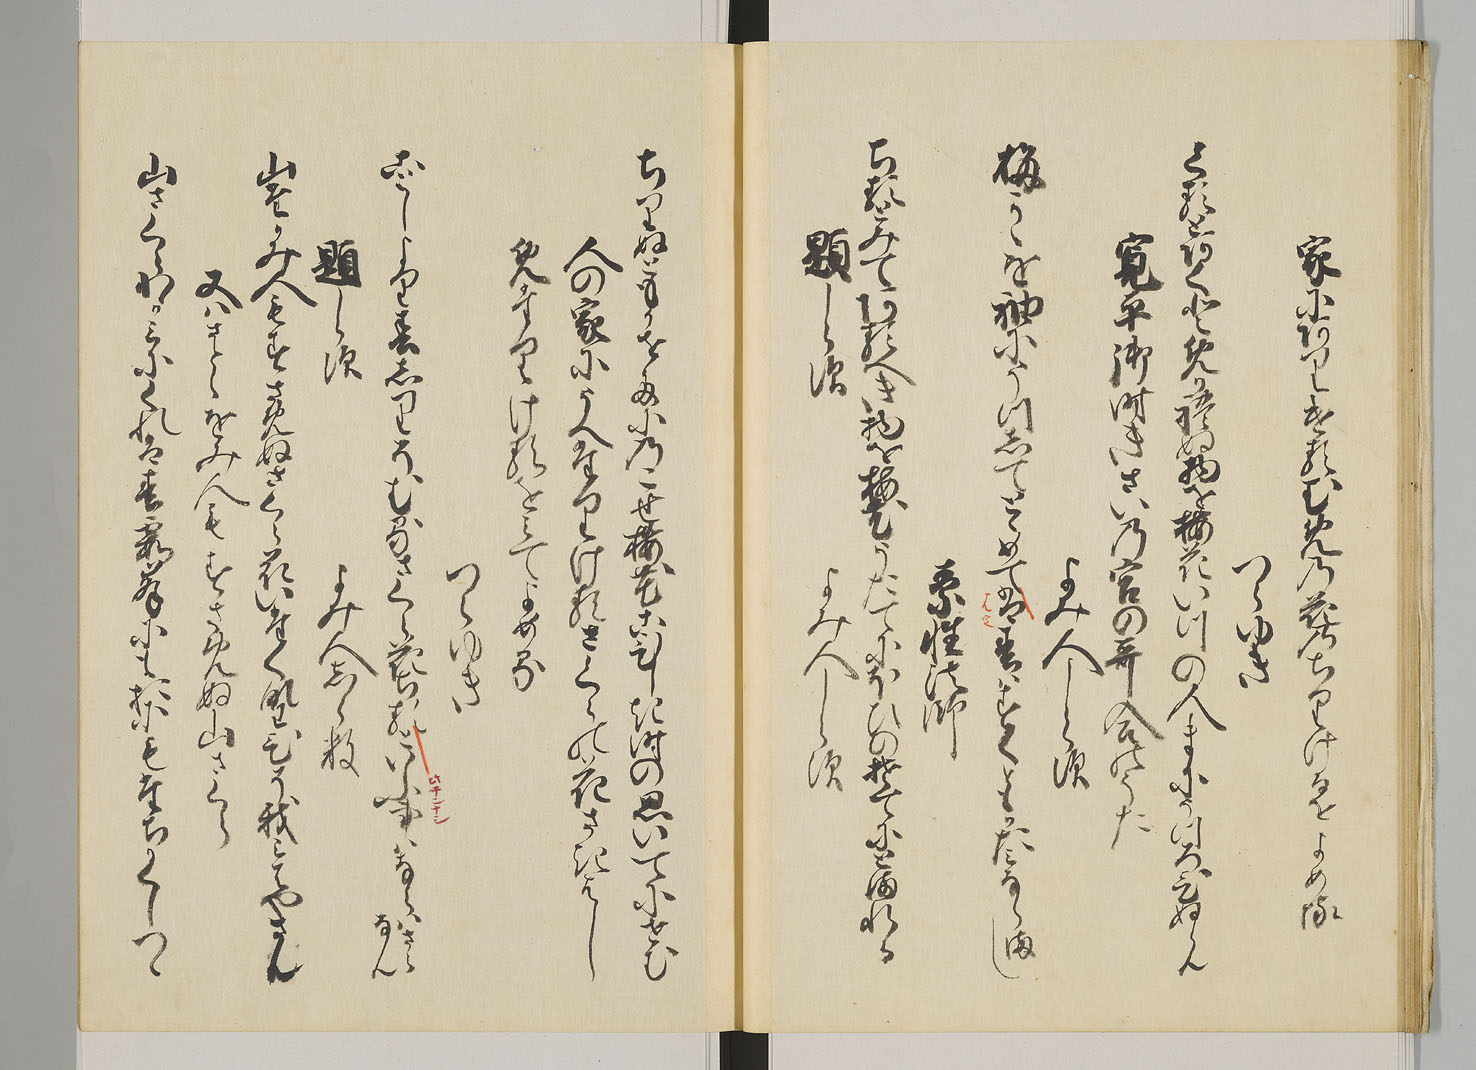 家にありけるむめの花のちりけるをよめる
つらゆき
くるとあくとめかれぬ物を梅花いつの人まにうつろひぬらん
寛平御時きさいの宮の哥合のうた
よみ人しらす
梅かゝを袖にうつしてとゝめては春はすくともかたみならまし
素性法師
ちるとみてあるへき物を梅花うたてにほひの袖にとまれる
題しらす
よみ人しらす
ちりぬともかをたにのこせ梅花こひしき時の思いてにせむ
人の家にうへたりけるさくらの花さきはし
めたりけるをみてよめる
つらゆき
ことしより春しりそむるさくら花ちるといふ事はならはさらなん
題しらす
よみ人しらす
山たかみ人もすさめぬさくら花いたくなわひそ我みはやさん
又はさとゝをみ人もすさめぬ山さくら
山さくらわかみにくれは春霞峯にもおにもたちかくしつゝ